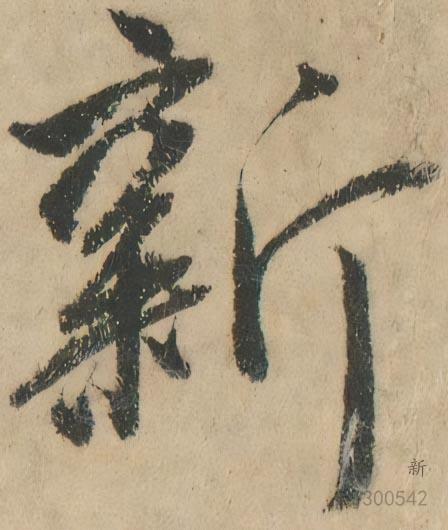 新
新
300542